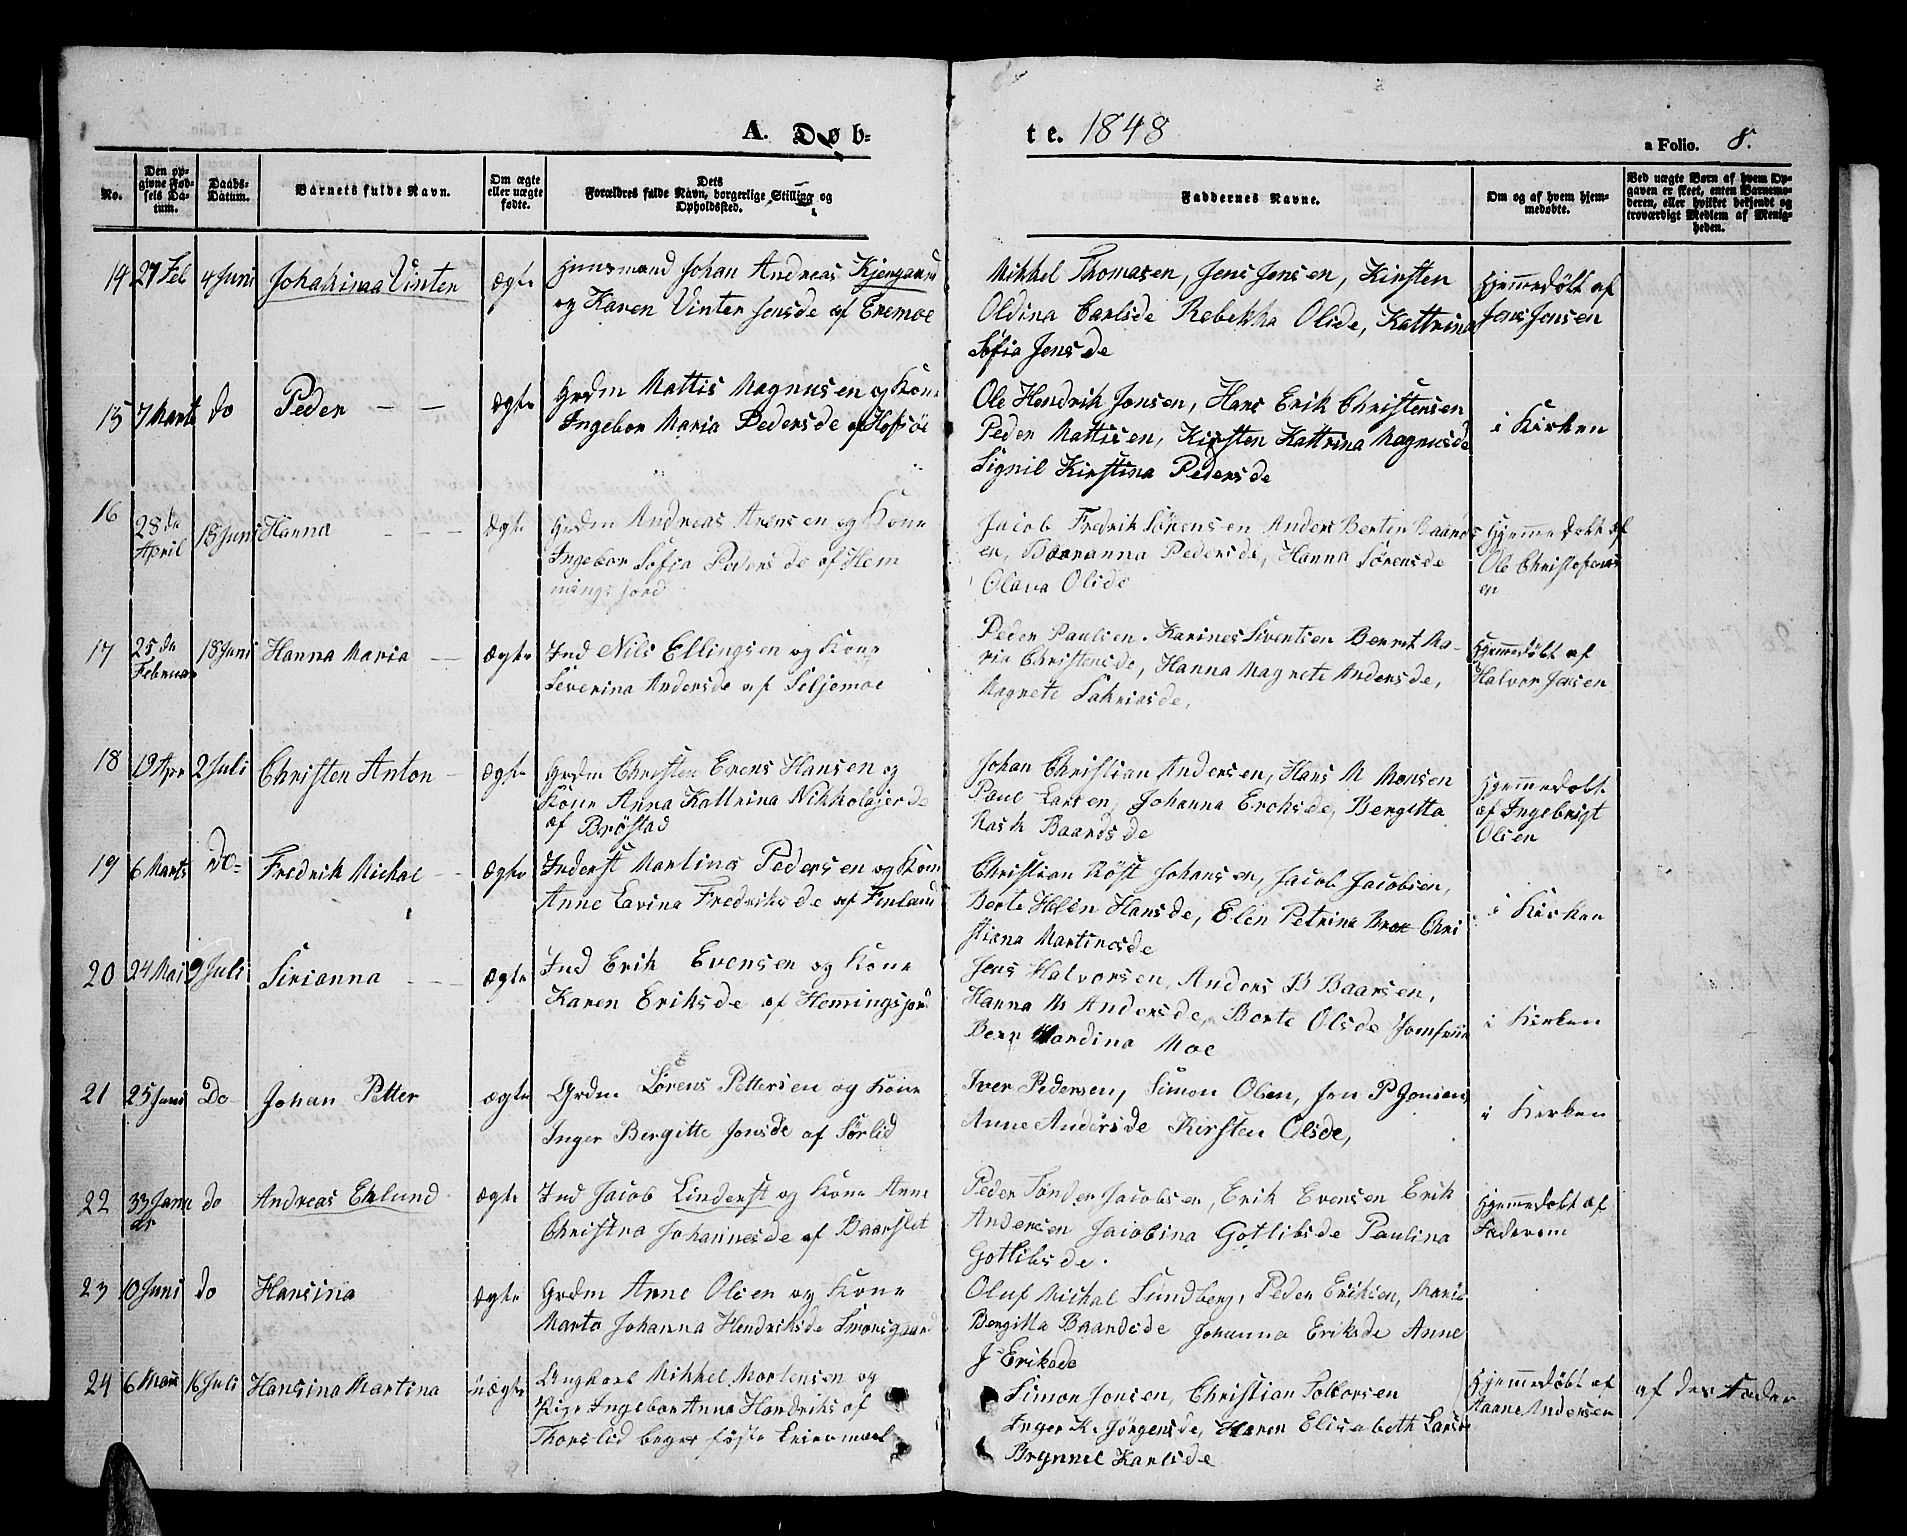 A. Døb-
te. 1848
a Folio. 8.
No.
Den opgivne Fødsels Datum.
Daabs-Datum.
Barnets fulde Navn.
Om ægte eller uægte fødte.
Dets Forældres fulde Navn, borgerlige Stilling og Opholdssted.
Faddernes Navne.
Om og af hvem hjemmedøbte.
Ved uægte Børn af hvem Opgaven er skeet, enten Barnemoderen, eller hvilket bekjendt og troværdigt Medlem af Menigheden.
14 27 Feb 4 Juni Johakimaa Vinter ægte
Huusmand Johan Andreas Kjengaard
og Karen Vinter Jensde af Eremoe
Mikkel Thomasen, Jens Jensen, Kirsten
Oldina Carlsde Rebekka Olsde, Kattrina
Sofia Jensde
Hjemmedøbt af
Jens Jensen
15 7 Marts do Peder - - ægte
Grdm Mattis Magnusen og Kone
Ingebor Maria Pedersde af Hofsöe
Ole Hendrik Jonsen, Hans Erik Christensen
Peder Mattisen, Kirsten Kattrina Magnusde
Signil Kirstina Pedersde
i Kirken
16 28 da April 18 Juni Hanna - - - ægte
Grdm Andreas Arensen og Kone
Ingebor Sofia Pedersde af Hem
mingsjord
Jacob Fredrik Sörensen Anders Bertin Baards
en, Baaranna Pedersde, Hanna Sörensde
Olava Olsde
Hjemmedøbt af
Ole Christofers
en
17 25 da Februar 18 Juni Hanna Maria - ægte
Ind Nils Ellingsen og Kone
Severina Andersde af Seljemoe
Peder Paulsen. Karines Sivertsen Berret Ma-
ria Christensde, Hanna Magrete Andersde,
Magrete Sakriasde,
Hjemmedøbt af
Halvor Jensen
18 19 Apr 2 Juli Christen Anton - ægte
Grdm Christen Evens Hansen og
Kone Anna Kattrina Nikkolajsde
af Bröstad
Johan Christian Andersen, Hans M Monsen
Paul Larsen, Johanna Erchsde, Bergitta
Rask Baardsde
Hjemmedøbt
af Ingebrigt
Olsen
19 6 Marts Do- Fredrik Michal - - ægte
Inderst Martinus Pedersen og Kone
Anne Lavina Fredriksde af Finland
Christian Röst Johansen, Jacob Jacobsen,
Berte Helen Hansde, Elen Petrina Chri
stiana Martinesde
i Kirken
20 24 Mai 9 Juli Sirianna - - ægte
Ind Erik Evensen og Kone
Karen Eriksde af Hemingsjord
Jens Halvorsen, Anders B Baarsen,
Hanna M Andersde, Berte Olsde Jomfrue
Bernhardina Moe
i Kirken
21 25 Juni Do Johan Petter ægte
Grdm Sörens Pettersen og Kone
Inger Bergitte Jonsde af Sörlid
Iver Pedersen, Simon Olsen, Jon P Jonsen,
Anne Andersde Kirsten Olsde,
i Kirken
22 33 Janu ar do Andreas Eklund ægte
Ind Jacob Linderst og Kone Anne
Christna Johannesde af Baarslet
Peder Tönder Jacobsen, Erik Evensen Erik
Andersen Jacobina Gotlibsde Paulina
Gotlibsde.
Hjemmedøbt af
Faderem
23 10 Juni do Hansina ægte
Grdm Arne Olsen og Kone
Marta Johanna Hendriksde Smorsgaard
Oluf Mickal Sundberg, Peder Eriksen, Maria
Bergitta Baardsde Johanna Eriksde Anne
J Eriksde
24 6 16 Juli Hansina Martina uægte
Ungkarl Mikkel Mortensen og
Pige Ingebor Anna Hendriks af
Thorslid beges förste Leiermaal
Simon Jonsen, Christian Tolborsen
Inger K. Jörgensde, Karen Elisabeth Larsd
Brynnel Karlsde
Hjemmedøbt af
Aaane Andersen
af des Fader